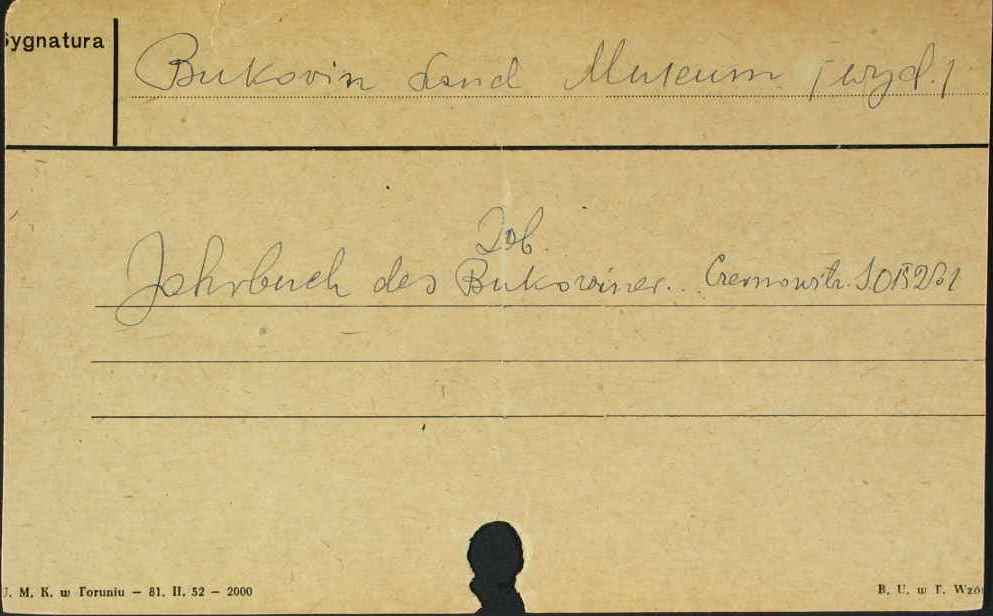 Sygnatura
Bukovin Land Museum /wyd./
Zob.
Jahrbuch des Bukowiner... Czernowitz.
U. M. K. w Toruniu — 81. II. 52 — 2000
B. U. w T. Wzór